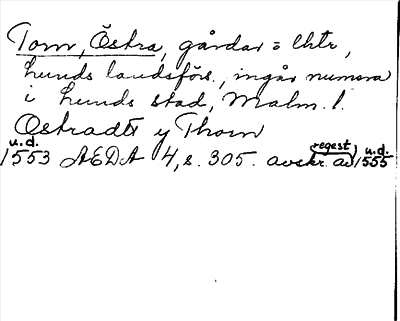 Torn, Östra, gårdar o lhtr,
Lunds landsförs., ingår numera
i Lunds stad, Malm. l.
Ostradtt y Thorn
u.d. regest u.d.
1553 AEDA 4, s. 305. avskr. av 1555